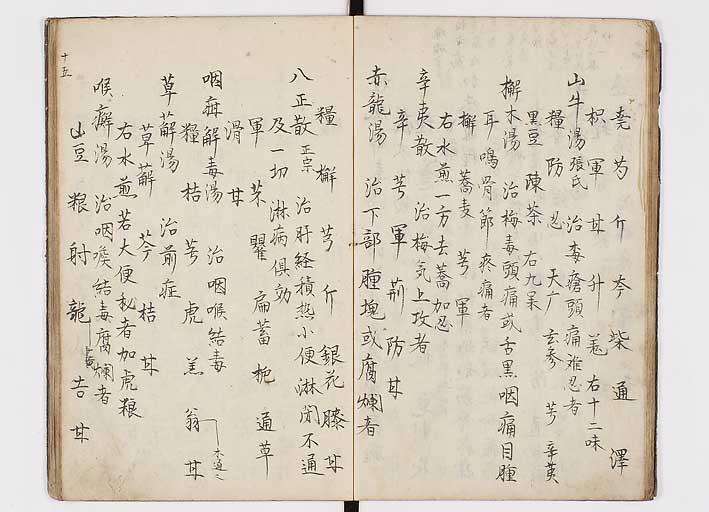 尭 芍 亇 岑 柴 通 澤
枳 軍 甘 升 羗 右十二味
山牛湯 張氏 治毒瘡頭痛难忍者
糧 防 忍 天广 玄参 芎 辛荑
黒豆 陳茶 右九呆
檞木湯 治梅毒頭痛或舌黒咽痛目腫
耳鳴骨節疼痛者
檞 蕎麦 芎 軍
右水煎一方去蕎加忍
辛夷散 治梅気上攻者
辛 芎 軍 荊 防 甘
赤龍湯 治下部腫塊或腐爛者
糧 檞 芎 亇 銀花 膝 甘
八正散 正宗 治肝経積熱小便淋閉不通
及一切淋病俱効
軍 芣 瞿 扁蓄 梔 通草
滑 甘
咽疳解毒湯 治咽喉結毒
糧 桔 芎 虎 羔 翁 甘 木通
草薢湯 治前症
草薢 芩 桔 甘
右水煎若大便秘者加虎粮
喉癬湯 治咽喉結毒腐爛者
山豆 粮 射 龍 吉 甘
十五